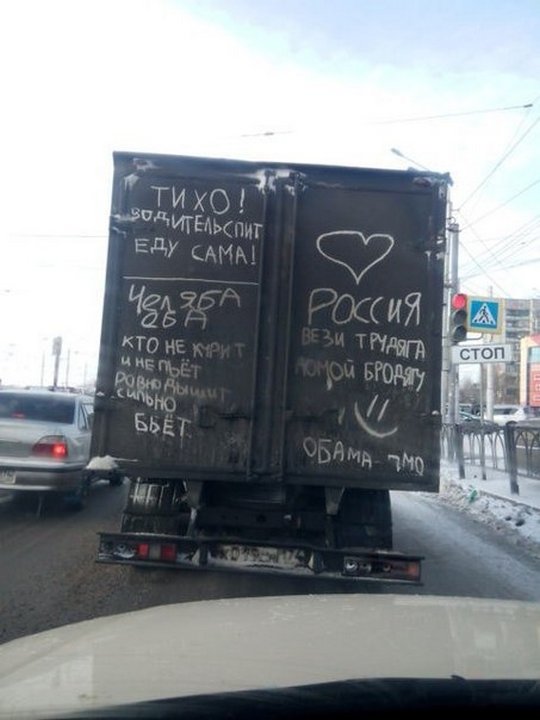 ТИХО!
ВОДИТЕЛЬ СПИТ
ЕДУ САМА!
ЧеЛЯБА
КТО НЕ КУРИТ
И НЕ ПЬЁТ
РОВНО ДЫШИТ
СИЛЬНО
БЬЁТ
РОССИЯ
ВЕЗИ ТРУДЯГА
ДОМОЙ БРОДЯГУ
ОБАМА - ЧМО
СТОП